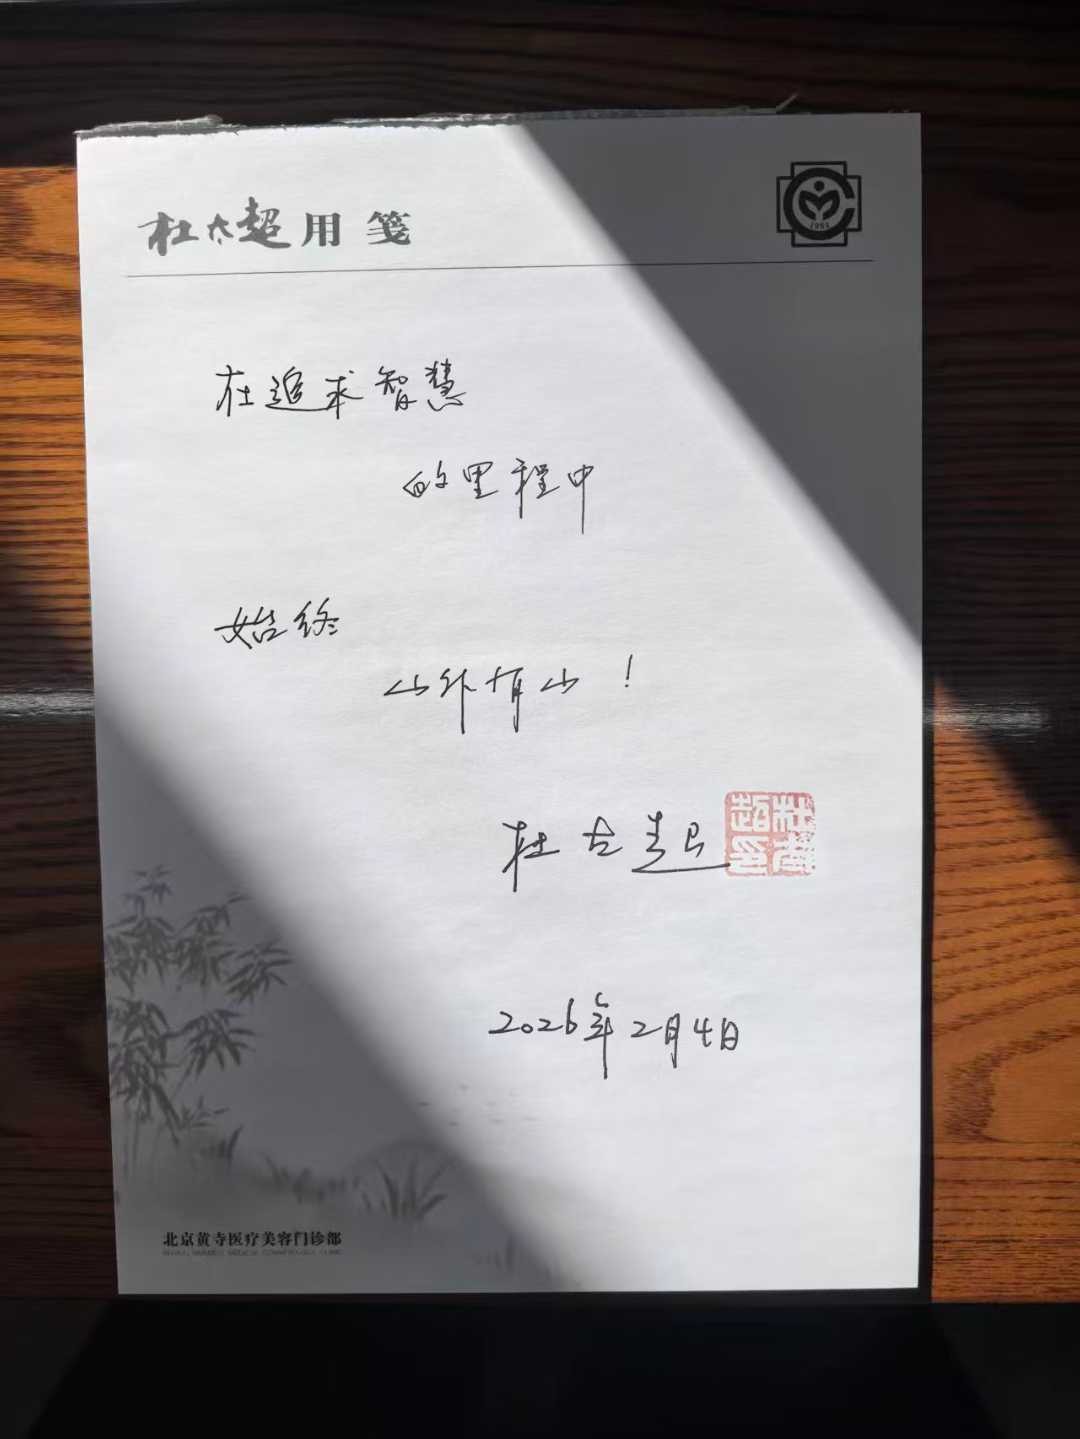 杜太超用笺
1991
在追求智慧
的里程中
始终
山外有山！
杜太超
2026年2月4日
北京黄寺医疗美容门诊部